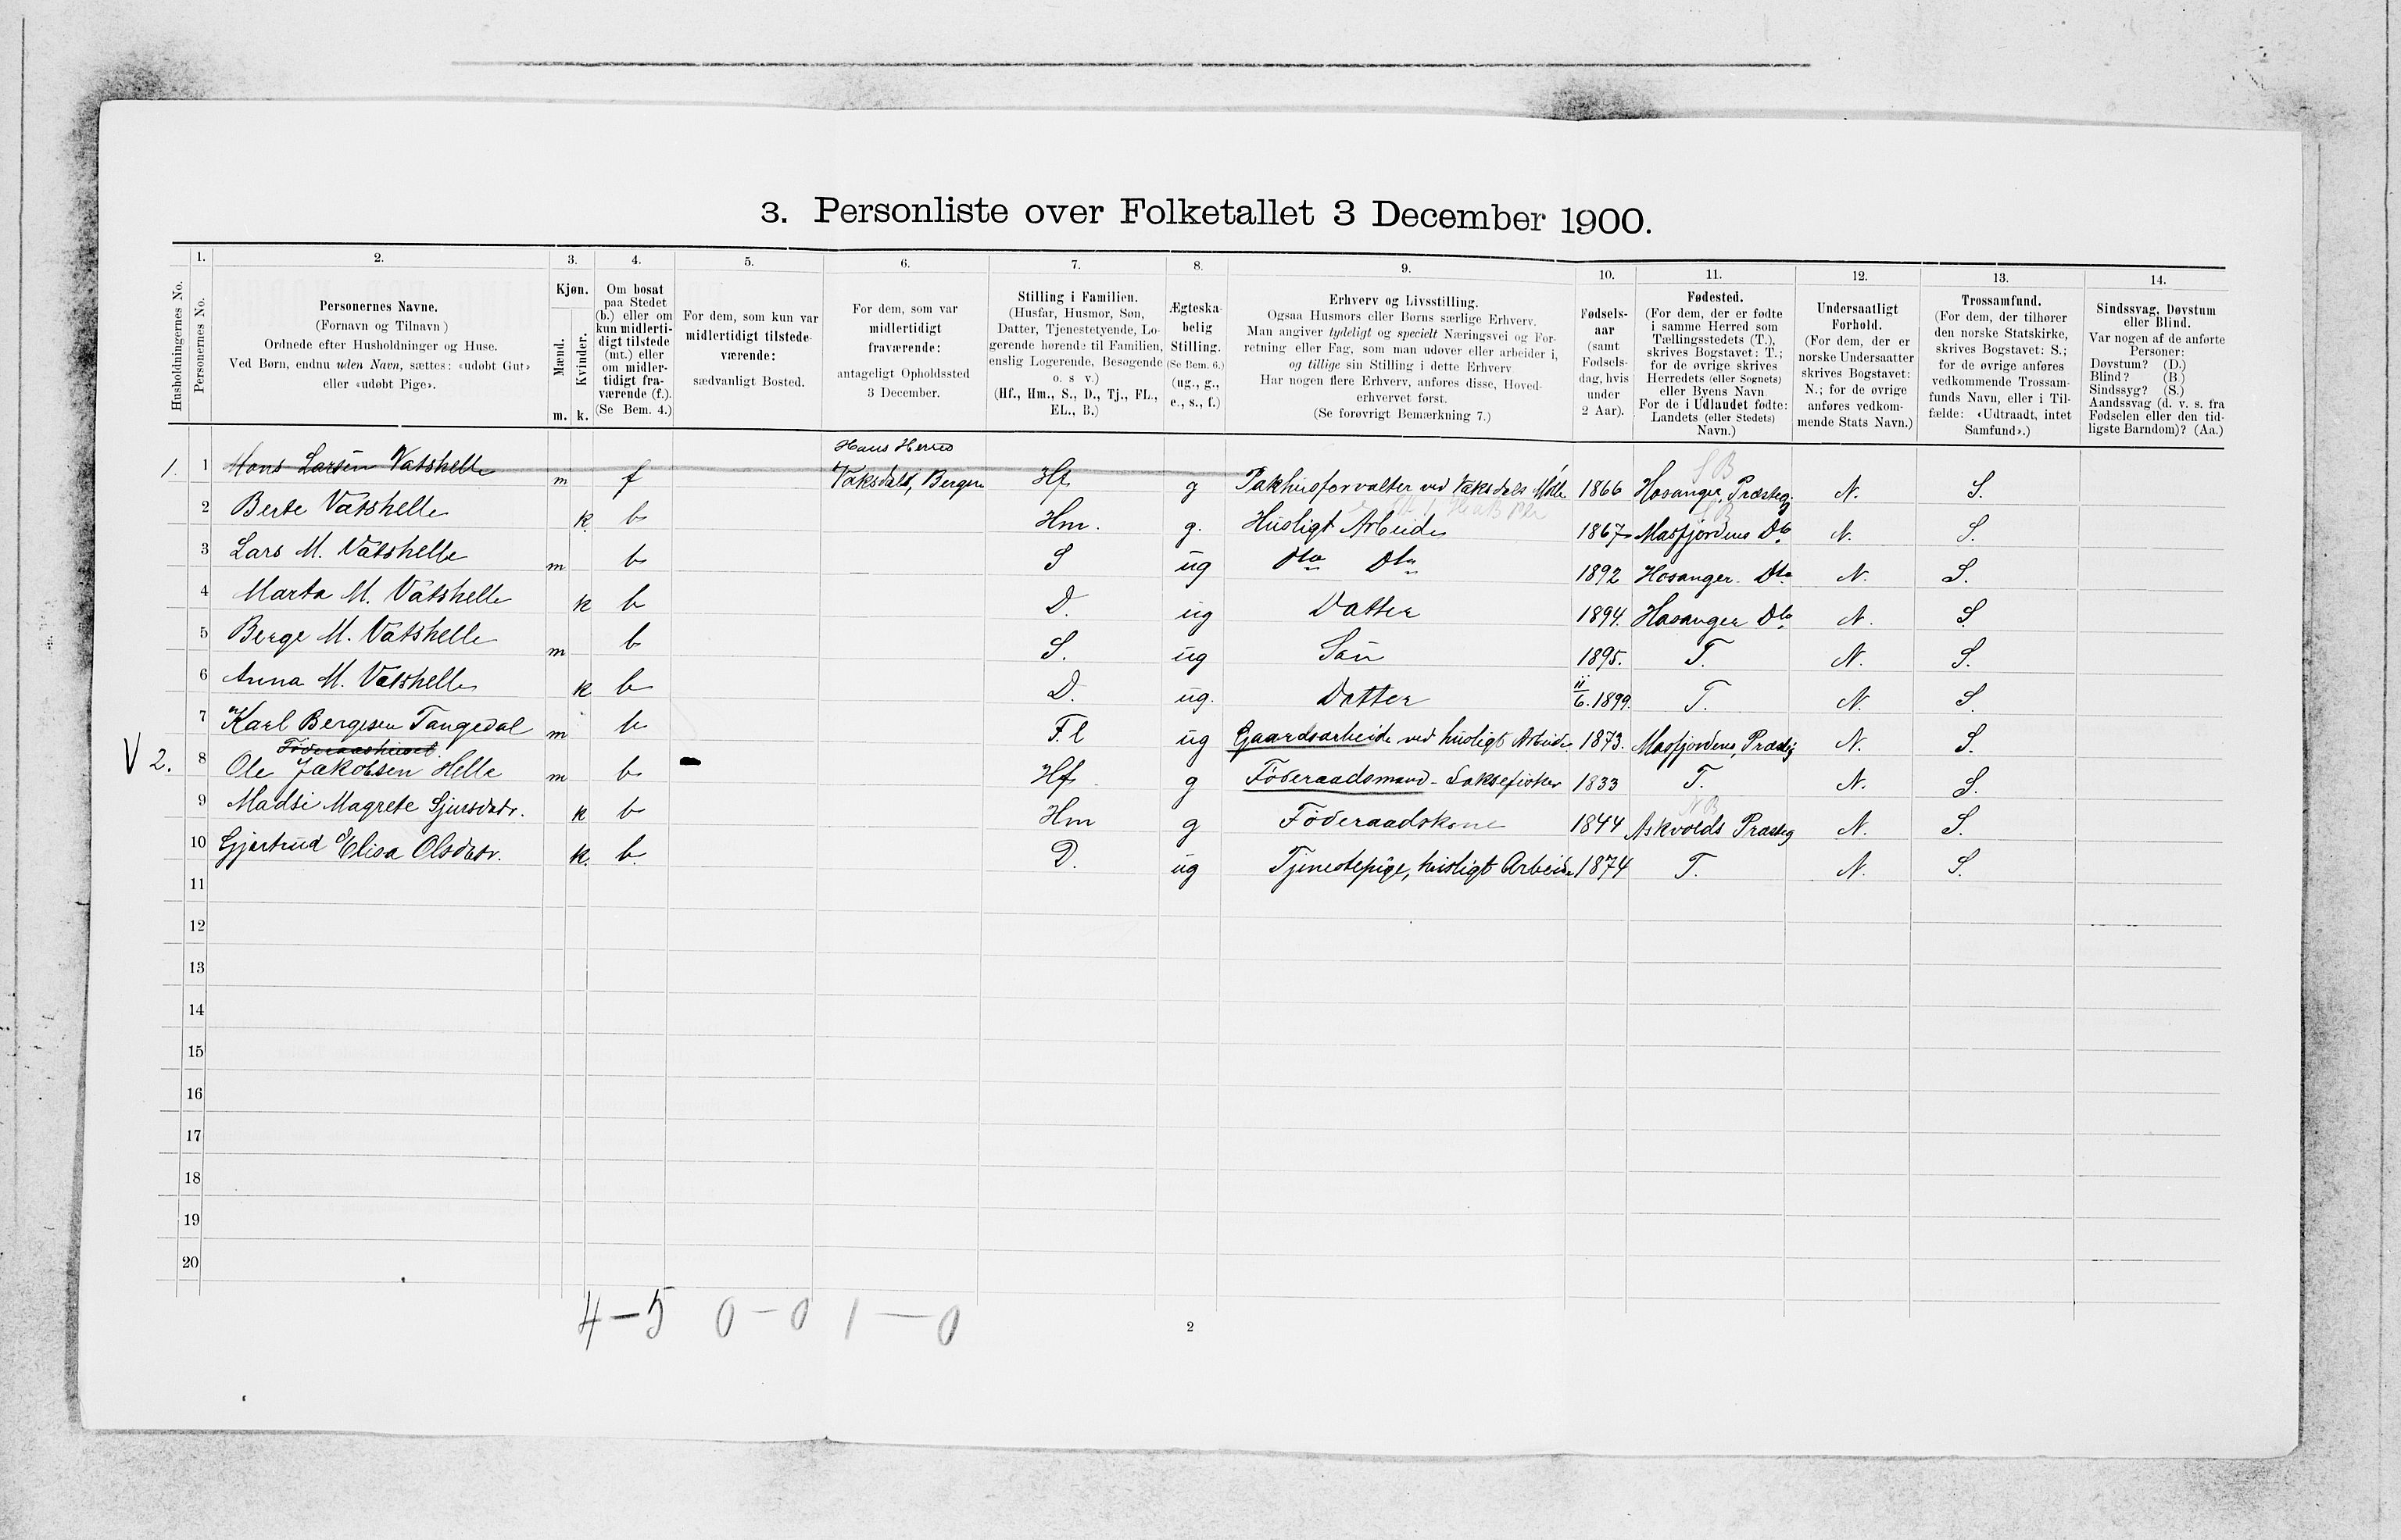 3. Personliste over Folketallet 3 December 1900.
1. 2. 3. 4. 5. 6. 7. 8. 9. 10. 11. 12. 13. 14.
Husholdningernes No.
Personernes No.
Personernes Navne.
(Fornavn og Tilnavn)
Ordnede efter Husholdninger og Huse.
Ved Børn, endnu uden Navn, sættes: «udøbt Gut»
eller «udøbt Pige».
Kjøn.
Mænd.
Kvinder.
m. k.
Om bosat
paa Stedet
(b.) eller om
kun midlerti-
digt tilstede
(mt.) eller
om midler-
tidigt fra-
værende (f.).
(Se Bem. 4.)
For dem, som kun var
midlertidigt tilstede-
værende:
sædvanligt Bosted.
For dem, som var
midlertidigt
fraværende:
antageligt Opholdssted
3 December.
Stilling i Familien.
(Husfar, Husmor, Søn,
Datter, Tjenestetyende, Lo-
gerende hørende til Familien,
enslig Logerende, Besøgende
o. s v.)
(Hf., Hm., S., D., Tj., FL.,
EL., B.)
Ægteska-
belig
Stilling.
(Se Bem. 6.)
(ug., g.,
e., s., f.)
Erhverv og Livsstilling.
Ogsaa Husmors eller Børns særlige Erhverv.
Man angiver tydeligt og specielt Næringsvei og For-
retning eller Fag, som man udøver eller arbeider i,
og tillige sin Stilling i dette Erhverv
Har nogen flere Erhverv, anføres disse, Hoved-
erhvervet først.
(Se forøvrigt Bemærkning 7.)
Fødsels-
aar
(samt
Fødsels-
dag, hvis
under
2 Aar).
Fødested.
(For dem, der er fødte
i samme Herred som
Tællingsstedets (T.),
skrives Bogstavet: T.;
for de øvrige skrives
Herredets (eller Sognets)
eller Byens Navn
For de i Udlandet fødte:
Landets (eller Stedets)
Navn.)
Undersaatligt
Forhold.
(For dem, der er
norske Undersaatter
skrives Bogstavet:
N.; for de øvrige
anføres vedkom-
mende Stats Navn.)
Trossamfund.
(For dem, der tilhører
den norske Statskirke,
skrives Bogstavet: S.;
for de øvrige anføres
vedkommende Trossam-
funds Navn, eller i Til-
fælde: «Udtraadt, intet
Samfund».)
Sindssvag, Døvstum
eller Blind.
Var nogen af de anførte
Personer:
Døvstum? (D.)
Blind? (B.)
Sindssyg? (S.)
Aandssvag (d. v. s. fra
Fødselen eller den tid-
ligste Barndom)? (Aa.)
Haus Herred S B
1. 1 Mons Larsen Vatshelle m f Vaksdal, Bergen Hf g Pakhusforvalter ved Vaksdals Mølle 1866 Hosanger, Præsteg. N. S.
2 Berte Vatshelle k b Hm. g. Husligt Arbeide 1867 Masfjordens Dto N. S.
3 Lars M. Vatshelle m b S ug Dto Dto 1892 Hosanger. Dto N. S.
4 Marta M. Vatshelle k b D. ug Datter 1894. Hosanger Dto N. S.
5 Berge M. Vatshelle m b S. ug Søn 1895. T. N. S.
6 Anna M. Vatshelle k b D. ug. Datter 11/6.1899. T. N. S.
7 Karl Bergesen Tangedal m b F.l ug Gaardsarbeide ved husligt Arbeide 1873. Masfjordens, Præstg N. S.
Föderaashuset
V 2. 8 Ole Jakobsen Helle m b Hf g Föderaadsmand - Laksefisker 1833 T. N. S.
9 Madsi Magrete Sjursdatr. k b Hm g Föderaadskone 1844 Askvolds Præsteg N. S.
10 Gjertrud Elisa Olsdatr. k. b. D. ug Tjenestepige, husligt Arbeide 1874 T. N. S.
11
12
13
14
15
16
17
18
19
20
4-5 0-0 1-0
2